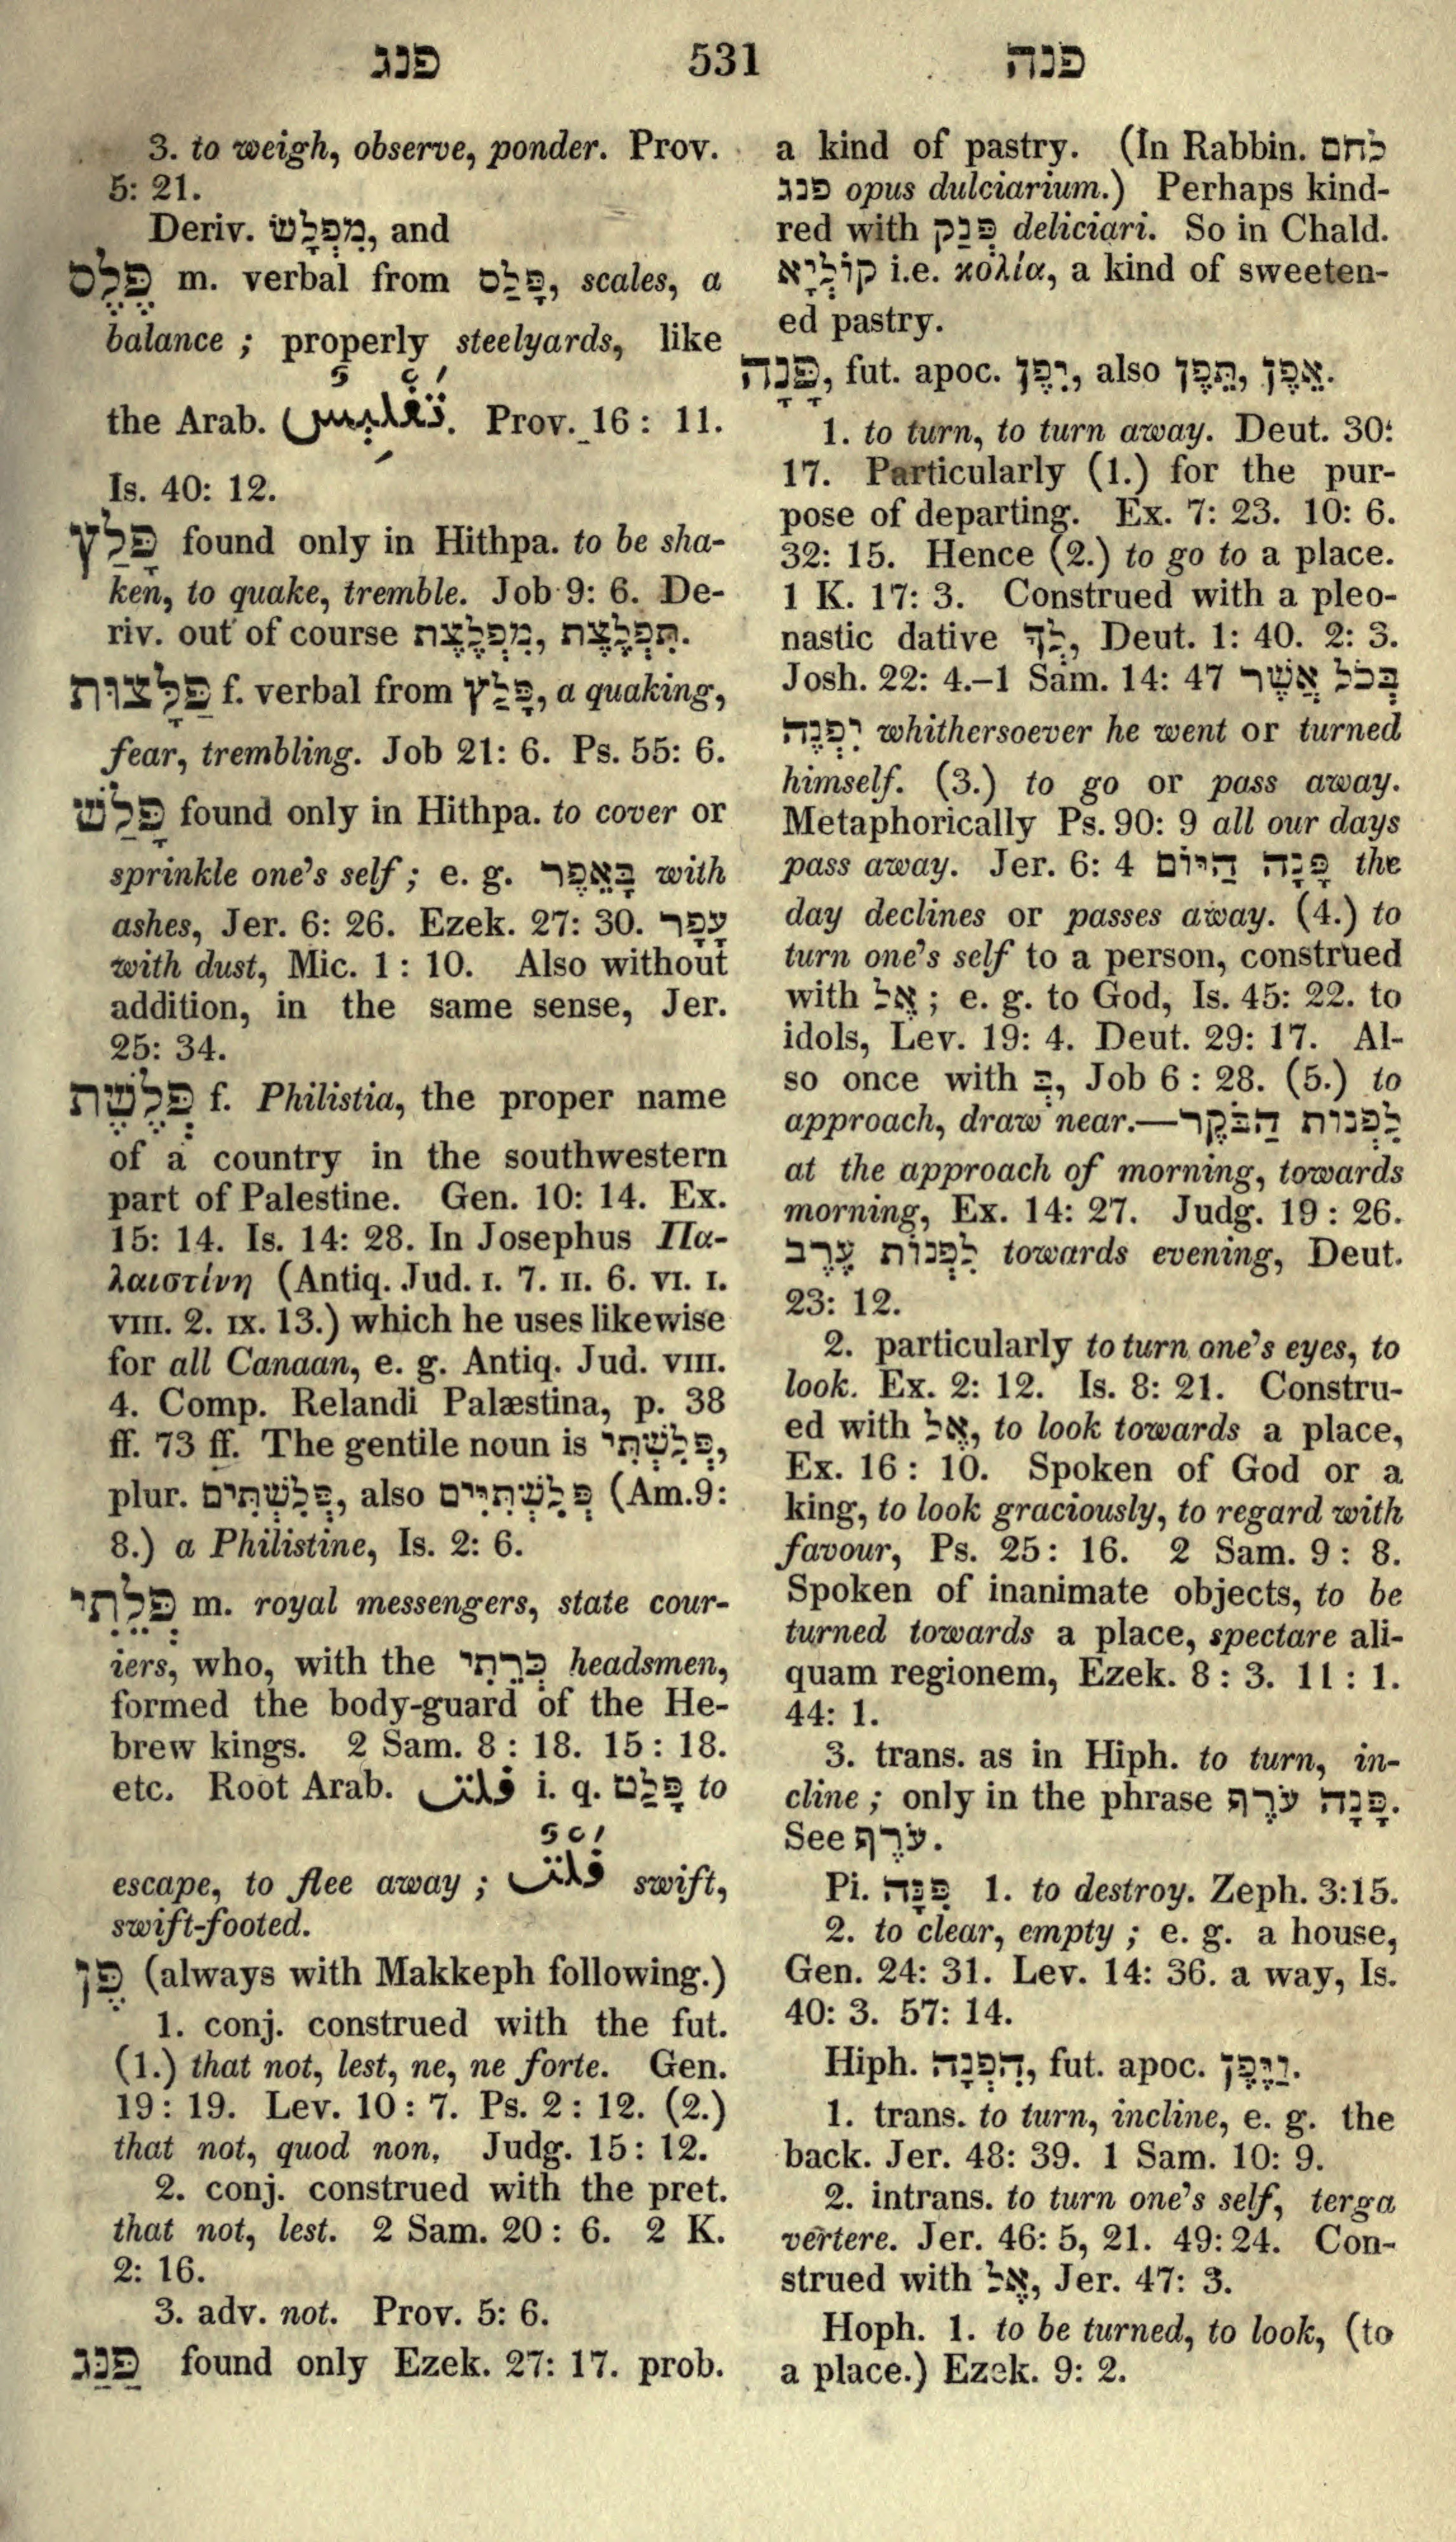 פנג 531 פנה
3. to weigh, observe, ponder. Prov.
5: 21.
Deriv. מִפְלָשׂ, and
פֶּלֶס m. verbal from פָּלַס, scales, a
balance ; properly steelyards, like
the Arab. Prov. 16 : 11.
Is. 40: 12.
פָּלַץ found only in Hithpa. to be sha-
ken, to quake, tremble. Job 9: 6. De-
riv. out of course מִפְלֶצֶת, תִּפְלֶצֶת.
פַּלָּצוּת f. verbal from פָּלַץ, a quaking,
fear, trembling. Job 21: 6. Ps. 55: 6.
פָּלַשׁ found only in Hithpa. to cover or
sprinkle one's self ; e. g. בָּאֵפֶר with
ashes, Jer. 6: 26. Ezek. 27: 30. עָפָר
with dust, Mic. 1 : 10. Also without
addition, in the same sense, Jer.
25: 34.
פְּלֶשֶׁת f. Philistia, the proper name
of a country in the southwestern
part of Palestine. Gen. 10: 14. Ex.
15: 14. Is. 14: 28. In Josephus Πα-
λαιστίνη (Antiq. Jud. I. 7. II. 6. VI. I.
VIII. 2. IX. 13.) which he uses likewise
for all Canaan, e. g. Antiq. Jud. VIII.
4. Comp. Relandi Palæstina, p. 38
ff. 73 ff. The gentile noun is פְּלִשְׁתִּי,
plur. פְּלִשְׁתִּים, also פְּלִשְׁתִּיִּים (Am.9:
8.) a Philistine, Is. 2: 6.
פְּלֵתִי m. royal messengers, state cour-
iers, who, with the כְּרֵתִי headsmen,
formed the body-guard of the He-
brew kings. 2 Sam. 8 : 18. 15 : 18.
etc. Root Arab. فلت i. q. פָּלַט to
escape, to flee away ; فَلْتٌ swift,
swift-footed.
פֶּן (always with Makkeph following.)
1. conj. construed with the fut.
(1.) that not, lest, ne, ne forte. Gen.
19: 19. Lev. 10 : 7. Ps. 2 : 12. (2.)
that not, quod non, Judg. 15 : 12.
2. conj. construed with the pret.
that not, lest. 2 Sam. 20 : 6. 2 K.
2: 16.
3. adv. not. Prov. 5: 6.
פַּנַּג found only Ezek. 27: 17. prob.
a kind of pastry. (In Rabbin. לחם
פנג opus dulciarium.) Perhaps kind-
red with פְּנַק deliciari. So in Chald.
קוֹלְיָא i.e. κολία, a kind of sweeten-
ed pastry.
פָּנָה, fut. apoc. יִפֶן, also תֵּפֶן, אֵפֶן.
1. to turn, to turn away. Deut. 30:
17. Particularly (1.) for the pur-
pose of departing. Ex. 7: 23. 10: 6.
32: 15. Hence (2.) to go to a place.
1 K. 17: 3. Construed with a pleo-
nastic dative לְךָ, Deut. 1: 40. 2: 3.
Josh. 22: 4.–1 Sam. 14: 47 בְּכֹל אֲשֶׁר
יִפְנֶה whithersoever he went or turned
himself. (3.) to go or pass away.
Metaphorically Ps. 90: 9 all our days
pass away. Jer. 6: 4 פָּנָה הַיּוֹם the
day declines or passes away. (4.) to
turn one's self to a person, construed
with אֶל ; e. g. to God, Is. 45: 22. to
idols, Lev. 19: 4. Deut. 29: 17. Al-
so once with בְּ, Job 6 : 28. (5.) to
approach, draw near.—לִפְנוֹת הַבֹּקֶר
at the approach of morning, towards
morning, Ex. 14: 27. Judg. 19 : 26.
לִפְנוֹת עֶרֶב towards evening, Deut.
23: 12.
2. particularly to turn one's eyes, to
look. Ex. 2: 12. Is. 8: 21. Constru-
ed with אֶל, to look towards a place,
Ex. 16 : 10. Spoken of God or a
king, to look graciously, to regard with
favour, Ps. 25: 16. 2 Sam. 9 : 8.
Spoken of inanimate objects, to be
turned towards a place, spectare ali-
quam regionem, Ezek. 8 : 3. 11 : 1.
44: 1.
3. trans. as in Hiph. to turn, in-
cline ; only in the phrase פָּנָה עֹרֶף.
See עֹרֶף.
Pi. פִּנָּה 1. to destroy. Zeph. 3:15.
2. to clear, empty ; e. g. a house,
Gen. 24: 31. Lev. 14: 36. a way, Is.
40: 3. 57: 14.
Hiph. הִפְנָה, fut. apoc. וַיֶּפֶן.
1. trans. to turn, incline, e. g. the
back. Jer. 48: 39. 1 Sam. 10: 9.
2. intrans. to turn one's self, terga
vertere. Jer. 46: 5, 21. 49: 24. Con-
strued with אֶל, Jer. 47: 3.
Hoph. 1. to be turned, to look, (to
a place.) Ezek. 9: 2.